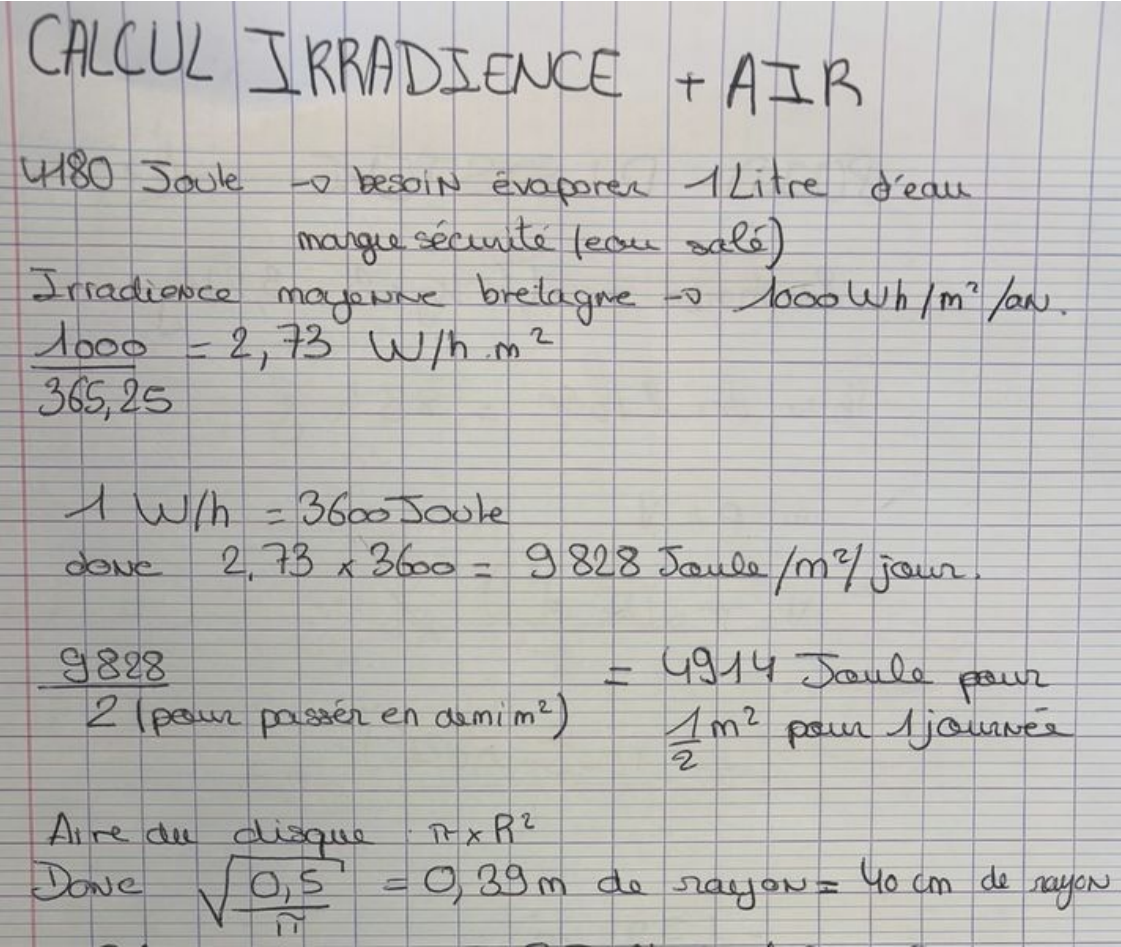 CALCUL IRRADIENCE + AIR
4180 Joule → besoin évaporer 1 Litre d'eau
marge sécurité (eau salé)
Irradience moyenne bretagne → 1000 Wh/m²/an.
1000 = 2,73 W/h.m²
365,25
1 W/h = 3600 Joule
donc 2,73 x 3600 = 9828 Joule/m²/jour.
9828 = 4914 Joule pour
2 (pour passér en demi m²) 1/2 m² pour 1 journée
Aire du disque π x R²
Donc √0,5/π = 0,39m de rayon = 40 cm de rayon